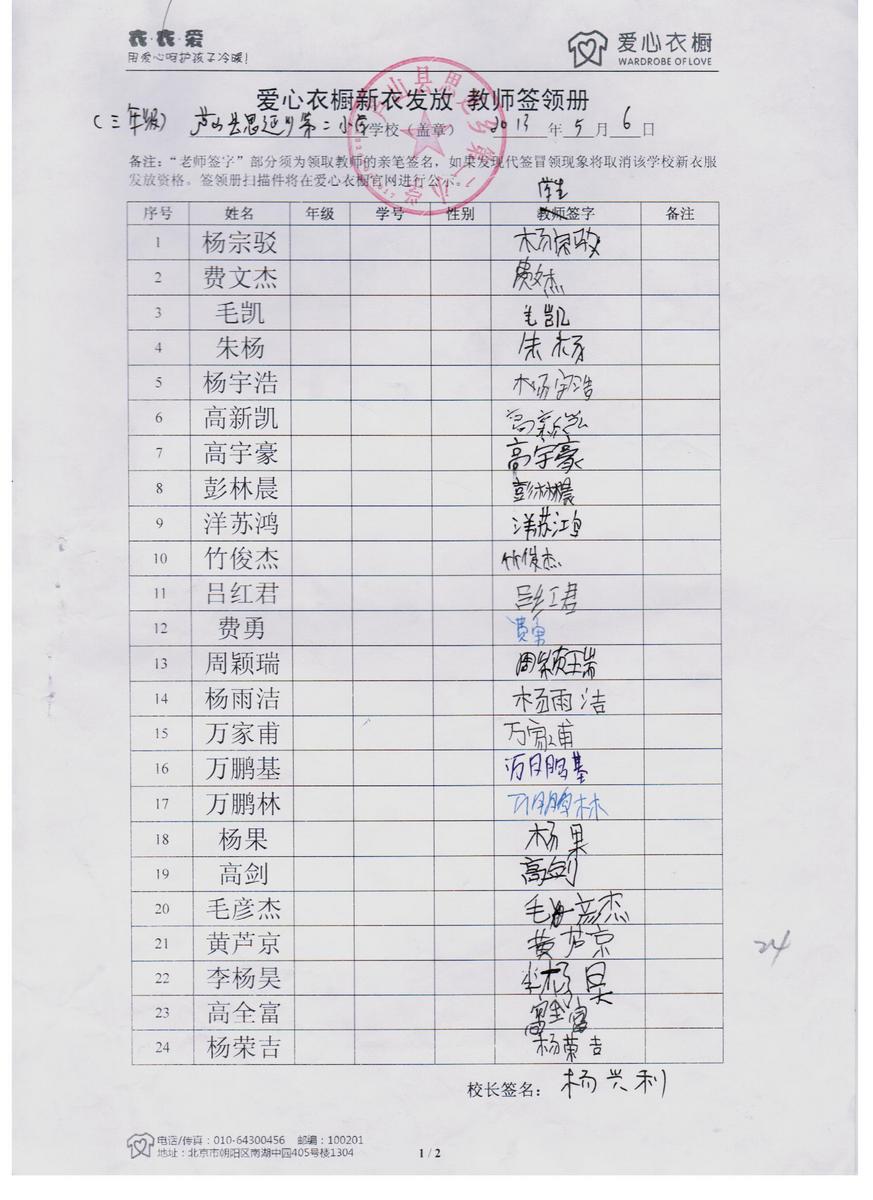 衣·衣·爱
用爱心呵护孩子冷暖!
爱心衣橱
WARDROBE OF LOVE
爱心衣橱新衣发放 教师签领册
(三年级) 芦山县思延乡第二小学 学校（盖章） 2013 年 5 月 6 日
备注：“老师签字”部分须为领取教师的亲笔签名，如果发现代签冒领现象将取消该学校新衣服
发放资格。签领册扫描件将在爱心衣橱官网进行公示。
学生
序号 姓名 年级 学号 性别 教师签字 备注
1 杨宗驳 杨宗驳
2 费文杰 费文杰
3 毛凯 毛凯
4 朱杨 朱杨
5 杨宇浩 杨宇浩
6 高新凯 高新凯
7 高宇豪 高宇豪
8 彭林晨 彭林晨
9 洋苏鸿 洋苏鸿
10 竹俊杰 竹俊杰
11 吕红君 吕红君
12 费勇 费勇
13 周颖瑞 周颖瑞
14 杨雨洁 杨雨洁
15 万家甫 万家甫
16 万鹏基 万鹏基
17 万鹏林 万鹏林
18 杨果 杨果
19 高剑 高剑
20 毛彦杰 毛彦杰
21 黄芦京 黄芦京
22 李杨昊 李杨昊
23 高全富
24 杨荣吉 杨荣吉
24
校长签名： 杨兴利
电话/传真：010-64300456 邮编：100201
地址：北京市朝阳区南湖中园405号楼1304
1 / 2